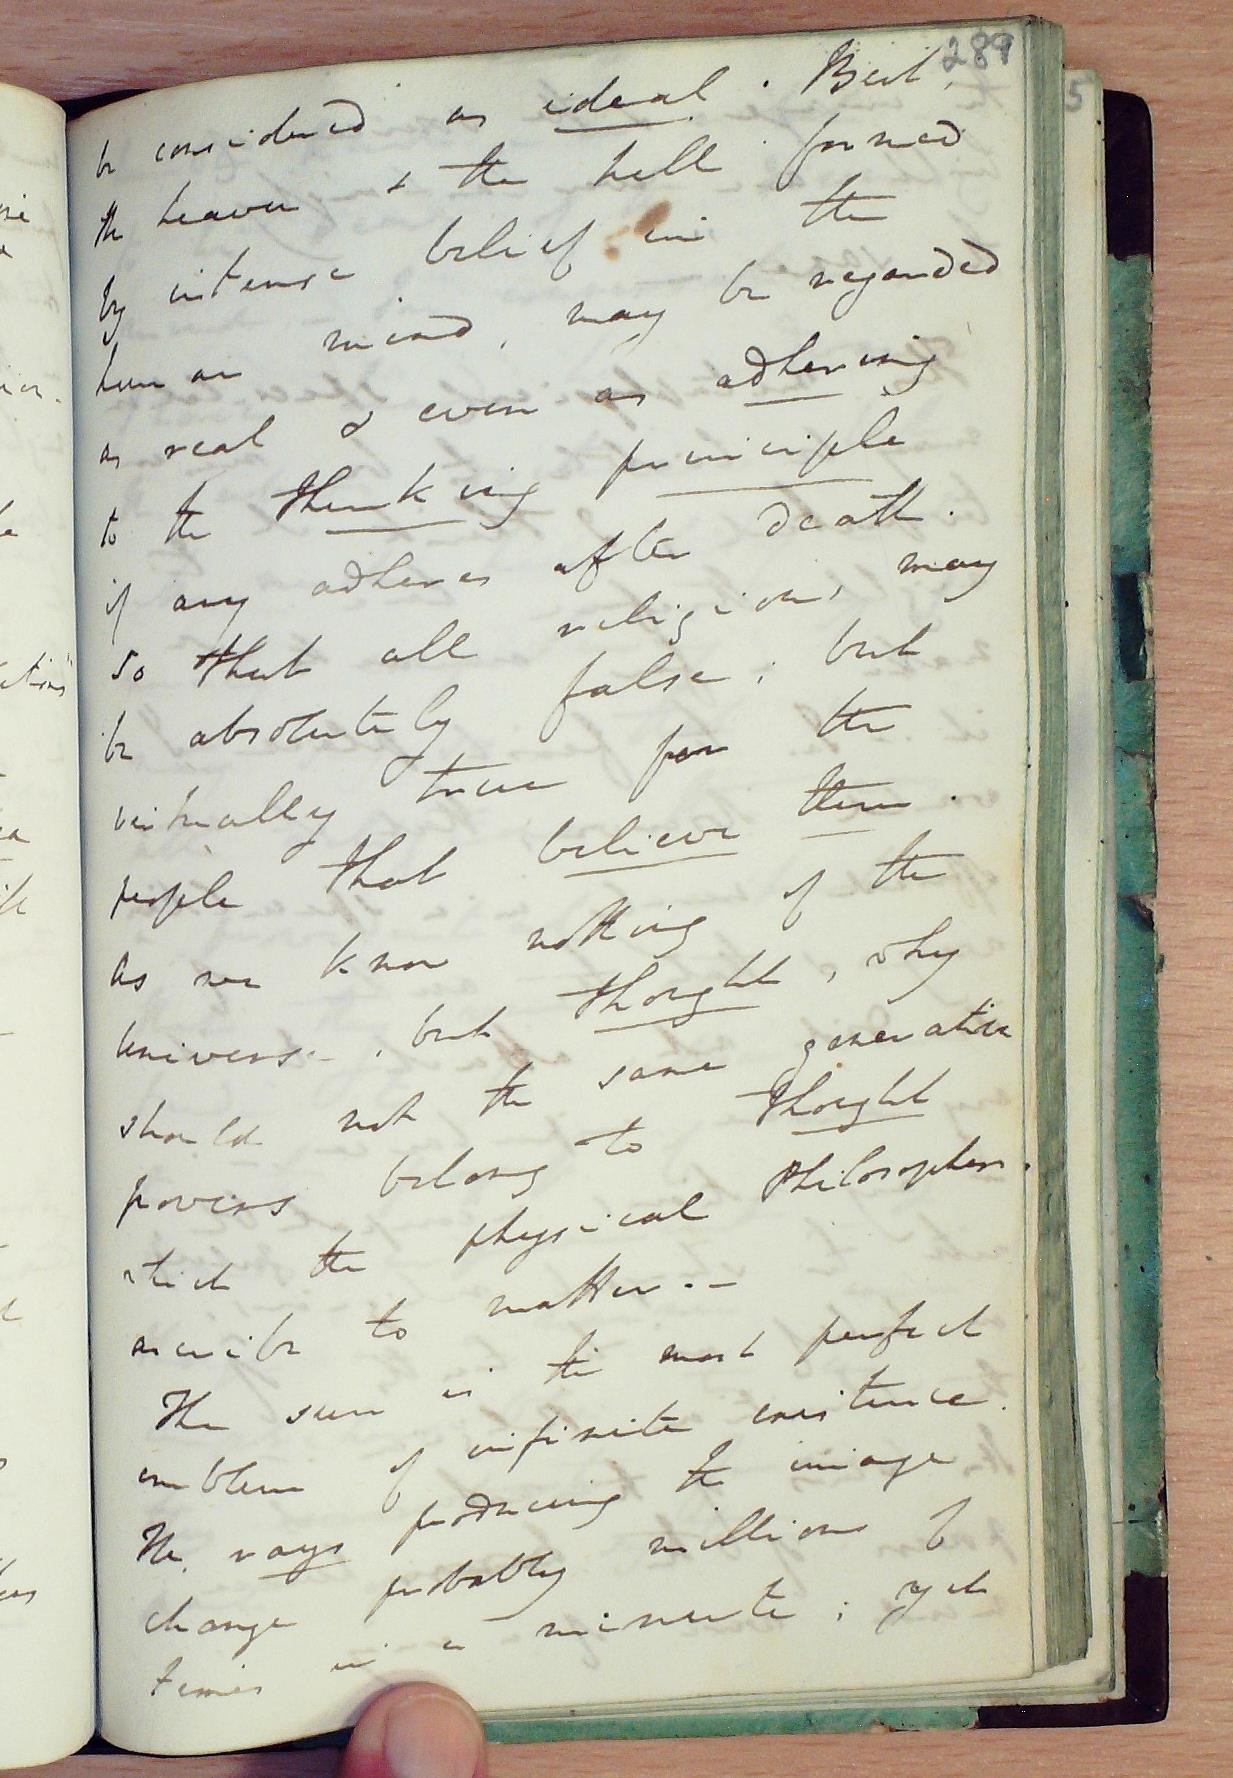 289
be considered as ideal. But
the heaven & the hell formed
by intense belief in the
human mind, may be regarded
as real & even as adhering
to the thinking principle
if any adheres after death.
so that all religions may
be absolutely false; but
virtually true for the
people that believe them.
As we know nothing of the
universe, but thought, why
should not the same generative
powers belong to thought
which the physical Philosophers
ascribe to matter.–
The sun is the most perfect
emblem of infinite existence.
The rays producing the image
change probably millions of
times in a minute; yet